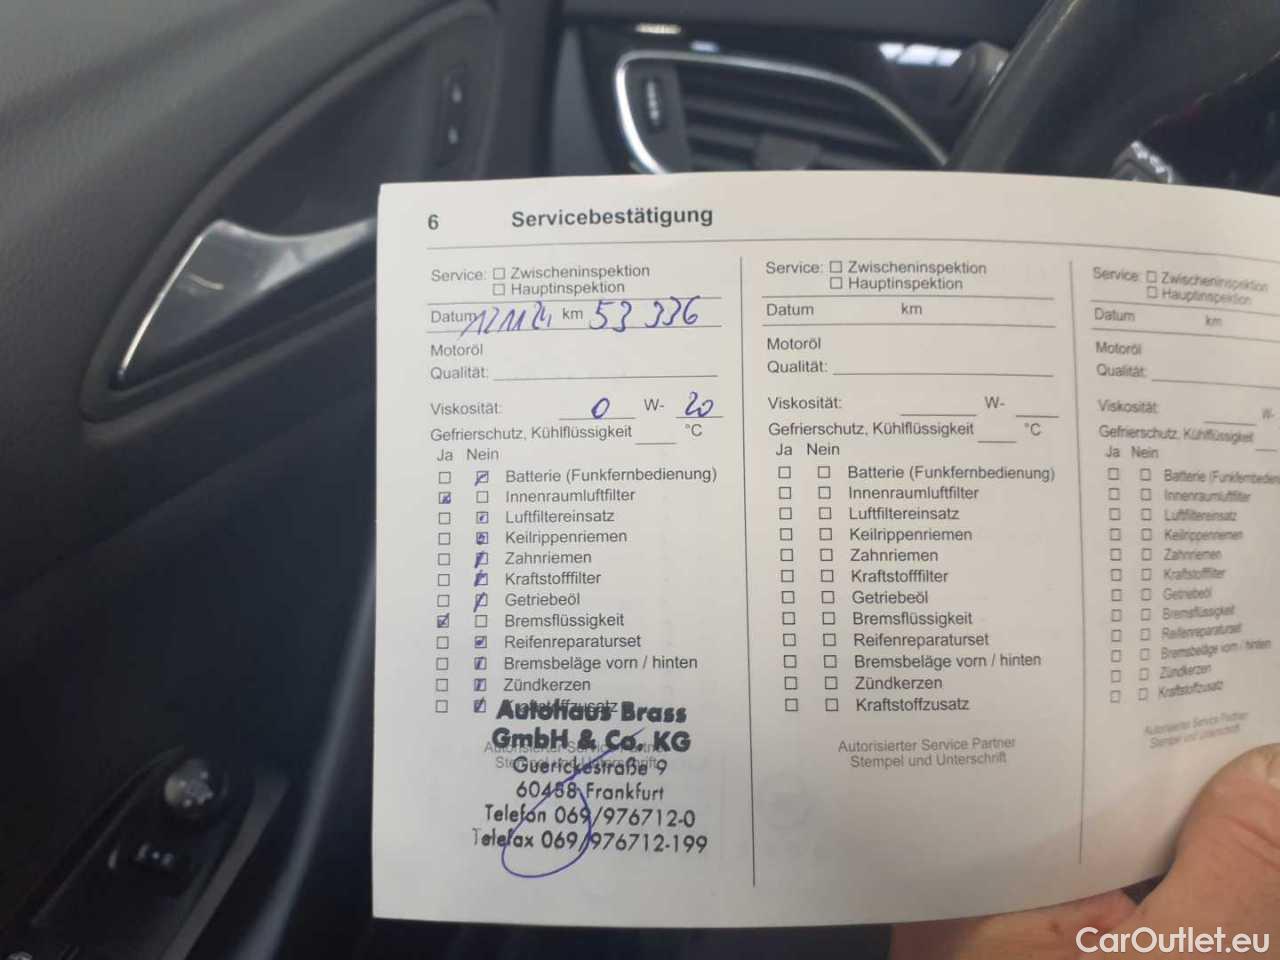 6 Servicebestätigung
Service: Zwischeninspektion
Hauptinspektion
Datum km 53 336
Motoröl
Qualität:
Viskosität: 0 W- 20
Gefrierschutz, Kühlflüssigkeit °C
Ja Nein
Batterie (Funkfernbedienung)
Innenraumluftfilter
Luftfiltereinsatz
Keilrippenriemen
Zahnriemen
Kraftstofffilter
Getriebeöl
Bremsflüssigkeit
Reifenreparaturset
Bremsbeläge vorn / hinten
Zündkerzen
Kraftstoffzusatz
Autorisierter Service Partner
Stempel und Unterschrift
Autohaus Brass
GmbH & Co. KG
Guerickestraße 9
60458 Frankfurt
Telefon 069/976712-0
Telefax 069/976712-199
Service: Zwischeninspektion
Hauptinspektion
Datum km
Motoröl
Qualität:
Viskosität: W-
Gefrierschutz, Kühlflüssigkeit °C
Ja Nein
Batterie (Funkfernbedienung)
Innenraumluftfilter
Luftfiltereinsatz
Keilrippenriemen
Zahnriemen
Kraftstofffilter
Getriebeöl
Bremsflüssigkeit
Reifenreparaturset
Bremsbeläge vorn / hinten
Zündkerzen
Kraftstoffzusatz
Autorisierter Service Partner
Stempel und Unterschrift
Service: Zwischeninspektion
Hauptinspektion
Datum km
Motoröl
Qualität:
Viskosität: W-
Gefrierschutz, Kühlflüssigkeit
Ja Nein
Batterie
Innenraumluftfilter
Luftfiltereinsatz
Keilrippenriemen
Zahnriemen
Kraftstofffilter
Getriebeöl
Bremsflüssigkeit
Reifenreparaturset
Bremsbeläge vorn / hinten
Zündkerzen
Kraftstoffzusatz
Autorisierter Service Partner
Stempel und Unterschrift
CarOutlet.eu